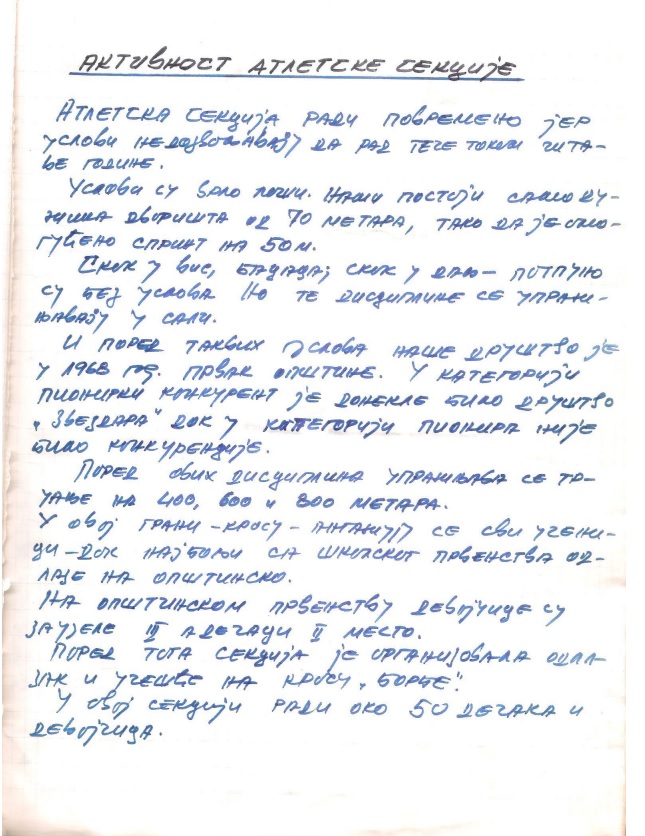 АКТИВНОСТ АТЛЕТСКЕ СЕКЦИЈЕ
АТЛЕТСКА СЕКЦИЈА РАДИ ПОВРЕМЕНО ЈЕР
УСЛОВИ НЕДОЗВОЛАВАЈУ ДА РАД ТЕЧЕ ТОКОМ ЧИТА-
ВЕ ГОДИНЕ.
УСЛОВИ СУ ВРЛО ЛОШИ. НАИМ ПОСТОЈИ САМО ДУ-
ЖИНА ДВОРИШТА ОД 70 МЕТАРА, ТАКО ДА ЈЕ ОМО-
ГУЋЕНО СПРИНТ НА 50 М.
СКОК У ВИС, БАЦАЊА, СКОК У ДАЉ - ПОТПУНО
СУ БЕЗ УСЛОВА НО ТЕ ДИСЦИПЛИНЕ СЕ УПРАЖ-
ЊАВАЈУ У САЛИ.
И ПОРЕД ТАКВИХ УСЛОВА НАШЕ ДРУШТВО ЈЕ
У 1968 ГОД. ПРВАК ОПШТИНЕ. У КАТЕГОРИЈИ
ПИОНИРКИ КОНКУРЕНТ ЈЕ ДОНЕКЛЕ БИЛО ДРУШТВО
„ЗВЕЗДАРА" ДОК У КАТЕГОРИЈИ ПИОНИРА НИЈЕ
БИЛО КОНКУРЕНЦИЈЕ.
ПОРЕД ОВИХ ДИСЦИПЛИНА УПРАЖЊАВА СЕ ТР-
ЧАЊЕ НА 400, 600 И 800 МЕТАРА.
У ОВОЈ ГРАНИ - КРОСУ - АНГАЖУЈУ СЕ СВИ УЧЕНИ-
ЦИ - ДОК НАЈБОЉИ СА ШКОЛСКОГ ПРВЕНСТВА ОД-
ЛАЗЕ НА ОПШТИНСКО.
НА ОПШТИНСКОМ ПРВЕНСТВУ ДЕВОЈЧИЦЕ СУ
ЗАУЗЕЛЕ III А ДЕЧАЦИ II МЕСТО.
ПОРЕД ТОГА СЕКЦИЈА ЈЕ ОРГАНИЗОВАЛА ОДЛА-
ЗАК И УЧЕШЋЕ НА КРОСУ „БОРБЕ".
У ОВОЈ СЕКЦИЈИ РАДИ ОКО 50 ДЕЧАКА И
ДЕВОЈЧИЦА.